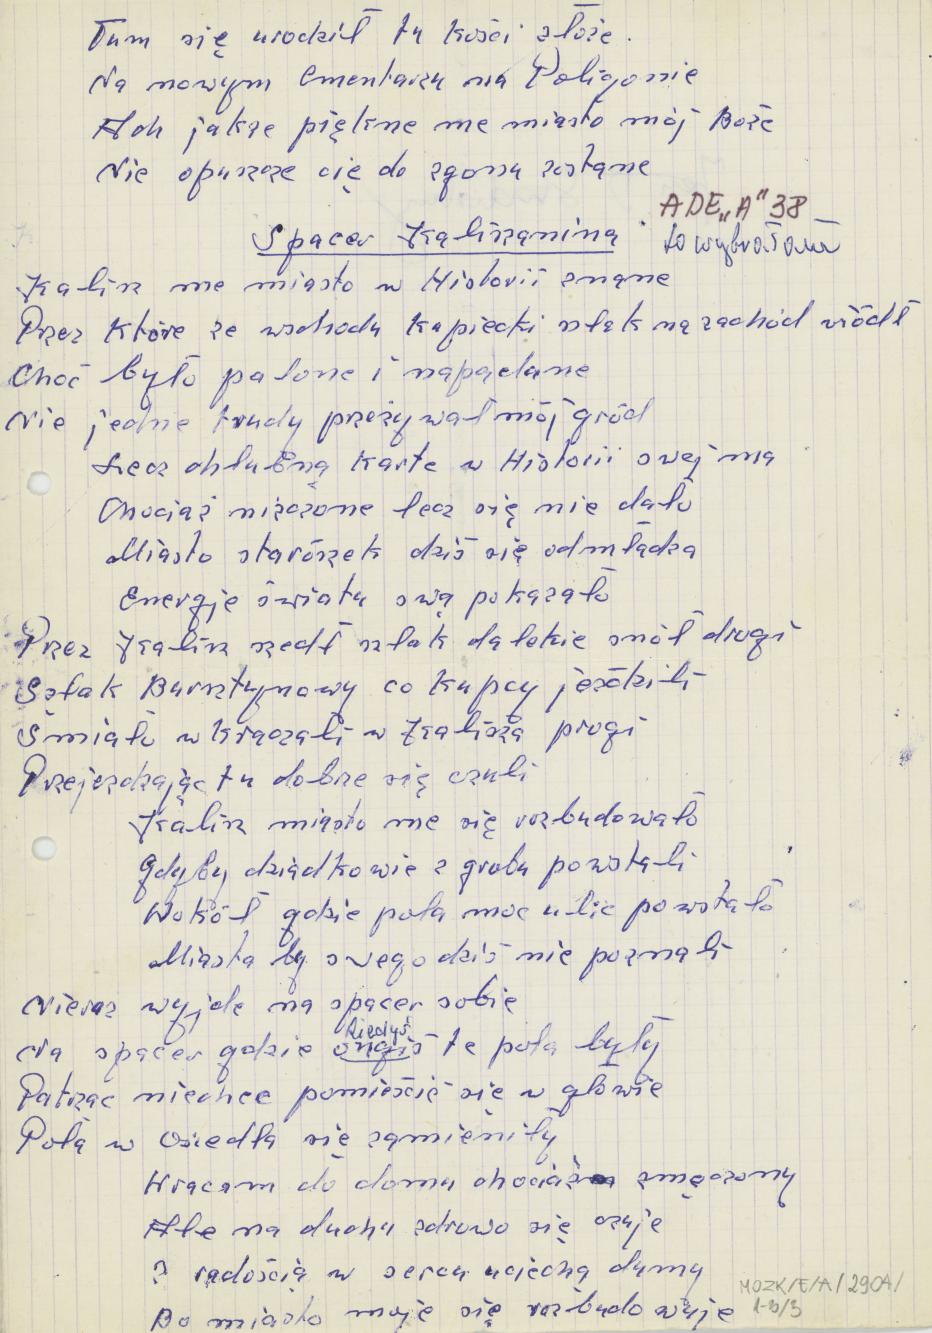 Tum się urodził tu kości złoże.
Na nowym Cmentarzu na Poligonie
Ach jakże piękne me miasto mój Boże
Nie opuszcze cię do zgonu zostane
ADE „A" 38
Spacer Kaliszanina
to wybrałam
Kalisz me miasto w Historii znane
Przez Które ze wschodu kupiecki szlak na zachód wiódł
Choć było palone i napadane
Nie jedne trudy przeżywał mój gród
Lecz chlubną Karte w Historii swej ma
Chociaż niszczone lecz się nie dało
Miasto staruszek dziś się odmładza
Energje światu swą pokazało
Przez Kalisz szedł szlak dalekie snół drogi
Szlak Bursztynowy co kupcy jeździli
Śmiało wkraczali w Kalisza progi
Przejezdzając tu dobrze się czuli
Kalisz miasto me się rozbudowało
Gdyby dziadkowie z grobu powstali
Wokół gdzie pola moc ulic powstało
Miasta by swego dziś nie poznali
Nieraz wyjde na spacer sobie
kiedyś
Na spacer gdzie ongiś te pola były
Patrząc niechce pomieścić się w głowie
Pola w Osiedla się zamieniły
Wracam do domu chociaż zmęczony
Ale na duchu zdrowo się czuje
Z radością w sercu uciechą dumy
Bo miasto moje się rozbudowuje
MOZK/E/A/290A/
1-b/3